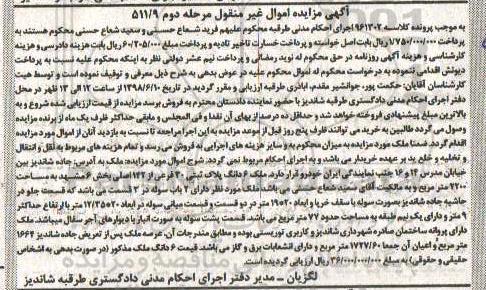 آگهی مزایده اموال غیر منقول مرحله دوم ۵۱۱/۹
به موجب پرونده کلاسه ۹۶۱۳۰۲ اجرای احکام مدنی طرقبه محکوم علیهم فرید شعاع حسنی و سعید شعاع حسنی محکوم هستند به
پرداخت ۱/۷۵۰/۰۰۰/۰۰۰ ریال بابت اصل خواسته و پرداخت خسارت تاخیر تادیه و پرداخت مبلغ ۶۰/۲۰۵/۰۰۰ ریال بابت هزینه دادرسی و هزینه
کارشناسی و هزینه آگهی روزنامه در حق محکوم له نوید رمضانی و پرداخت نیم عشر دولتی نظر به اینکه محکوم علیه نسبت به پرداخت
دیونش اقدامی ننموده به درخواست محکوم له اموال محکوم علیه در عوض بدهی به شرح ذیل معرفی و توقیف نموده است و توسط هیت
کارشناسان آقایان: حکمت پور، جوانشیر مقدم، اباذری طرقبه ارزیابی و مقرر گردید در تاریخ ۱۳۹۸/۶/۱۰ از ساعت ۱۲ الی ۱۳ ظهر در محل
دفتر اجرای احکام مدنی دادگستری طرقبه شاندیز با حضور نماینده دادستان محترم به فروش برسد مزایده از قیمت ارزیابی شده شروع و به
بالاترین مبلغ پیشنهادی فروخته خواهد شد و حداقل ده درصد از بهای آن نقدا و فی المجلس و مابقی حداکثر ظرف یک ماه از برنده مزایده
وصول می گردد طالبین به خرید می توانند ظرف پنج روز قبل از موعد مزایده به این اجرا مراجعه تا نسبت به بازدید آنان از اموال مورد مزایده
اقدام گردد. ضمنا ملک مورد مزایده به میزان محکوم به و سایر هزینه های اجرایی به فروش می رسد و تمام هزینه های مربوط به نقل و انتقال
و تخلیه و خلع ید بر عهده خریدار می باشد و به اجرای احکام مربوط نمی گردد. شرح اموال مورد مزایده: ملک به آدرس: جاده شاندیز بین
خیابان مدرس ۱۴ و ۱۶ جنب نمایندگی ایران خودرو قرار دارد. ملک ۶ دانگ پلاک ثبتی ۳۰ فرعی از ۱۲۲ اصلی بخش ۶ مشهد به مساحت
۲۲۰۰ متر مربع و به مالکیت آقای سعید شعاع حسنی می باشد ملک مورد نظر دارای ۲ باب سوله در ۲ قسمت می باشد که قسمت جلو در
حاشیه جاده شاندیز بصورت سوله با سقف خرپا و ابعاد ۲۰*۱۹ متر در دو قسمت و قسمت میانی سوله در ابعاد ۲۰*۱۲/۳۵ متر با ارتفاع حداکثر
۹ متر و دارای یک نیم طبقه به مساحت حدود ۷۷ متر مربع می باشد. قسمت پشت سوله به صورت انبار با دیوارهای آجر سفال میباشد. ملک
دارای پروانه ساختمان صادره شهرداری شاندیز و کاربری توریستی بوده و مطابق مندرجات آن، عرصه ملک پس از تعریض جاده شاندیز ۱۶۶۴
متر مربع و اعیان آن جمعا ۱۷۲۷/۶۰ متر مربع و دارای انشعابات برق و گاز می باشد. قیمت ۶ دانگ ملک مذکور (در صورت بدهی به اشخاص
حقیقی و حقوقی) به مبلغ ۳۶/۰۰۰/۰۰۰/۰۰۰ ریال ارزیابی گردیده است.
لگزیان – مدیر دفتر اجرای احکام مدنی دادگستری طرقبه شاندیز